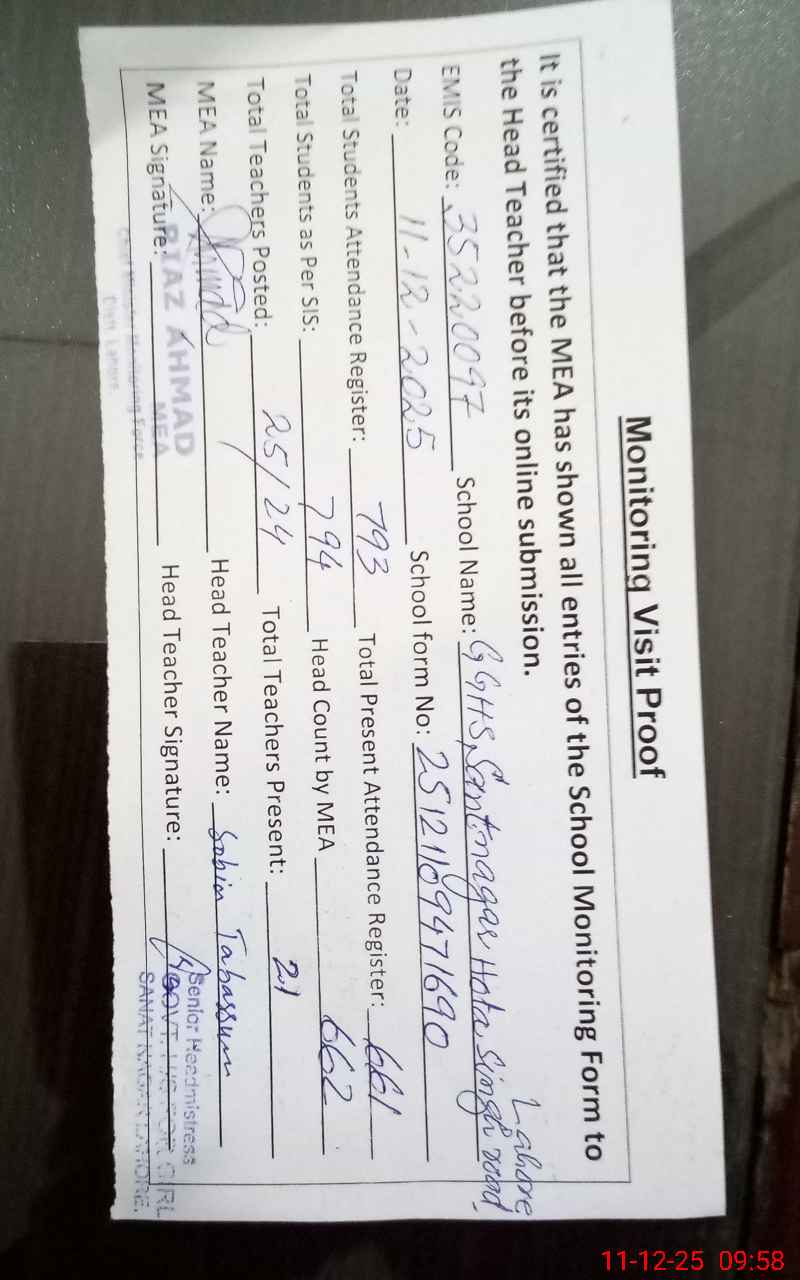 Monitoring Visit Proof
It is certified that the MEA has shown all entries of the School Monitoring Form to
the Head Teacher before its online submission.
EMIS Code: 35220097 School Name: GGHS, Santnagar Hota Singh road, Lahore
Date: 11-12-2025 School form No: 25121109471690
Total Students Attendance Register: 793 Total Present Attendance Register: 661
Total Students as Per SIS: 794 Head Count by MEA 662
Total Teachers Posted: 25/24 Total Teachers Present: 21
MEA Name: Head Teacher Name: Sobia Tabassum
MEA Signature: Head Teacher Signature:
RIAZ AHMAD
MEA
Chief Minister Monitoring Force
Distt. Lahore
Senior Headmistress
GOVT. FOR GIRL
SANAT NAGAR LAHORE.
11-12-25 09:58